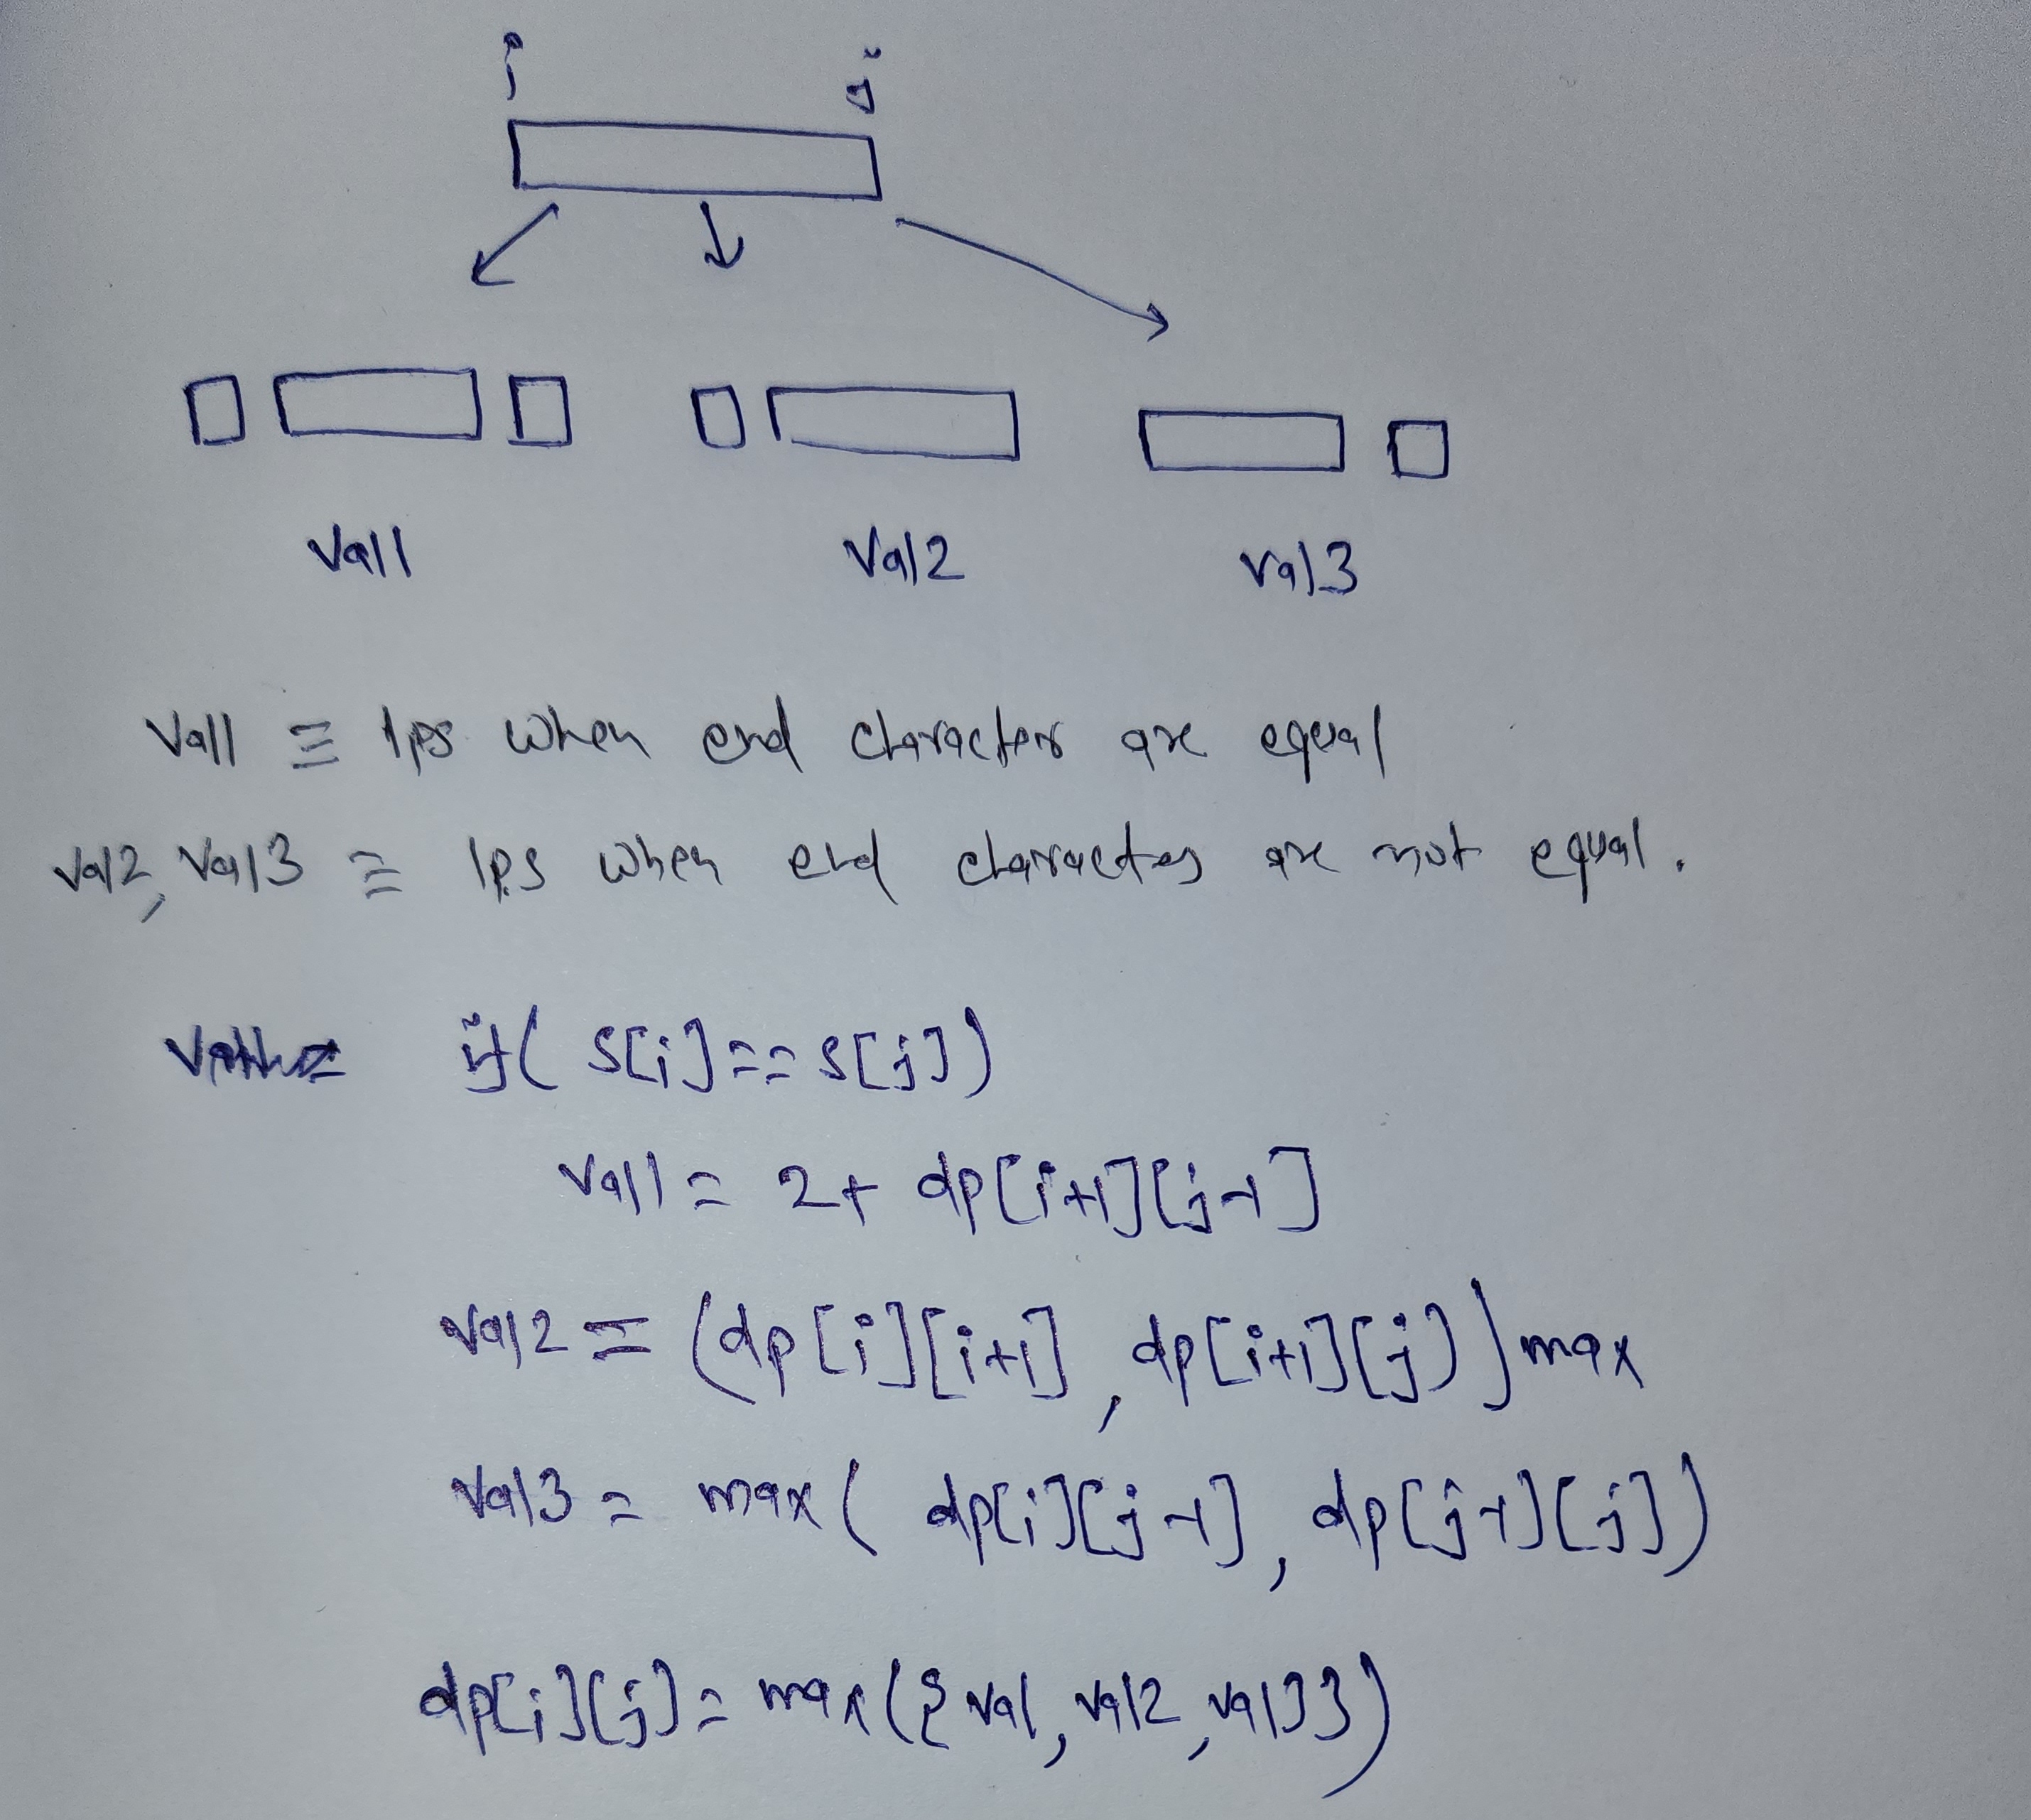 i j
val1 val2 val3
val1 ≡ lps when end character are equal
val2, val3 ≡ lps when end characters are not equal.
if( s[i]==s[j])
val1 = 2+ dp[i+1][j-1]
val2 = (dp[i][i+1], dp[i+1][j]) max
val3 = max( dp[i][j-1], dp[j-1][j])
dp[i][j] = max({val, val2, val3})